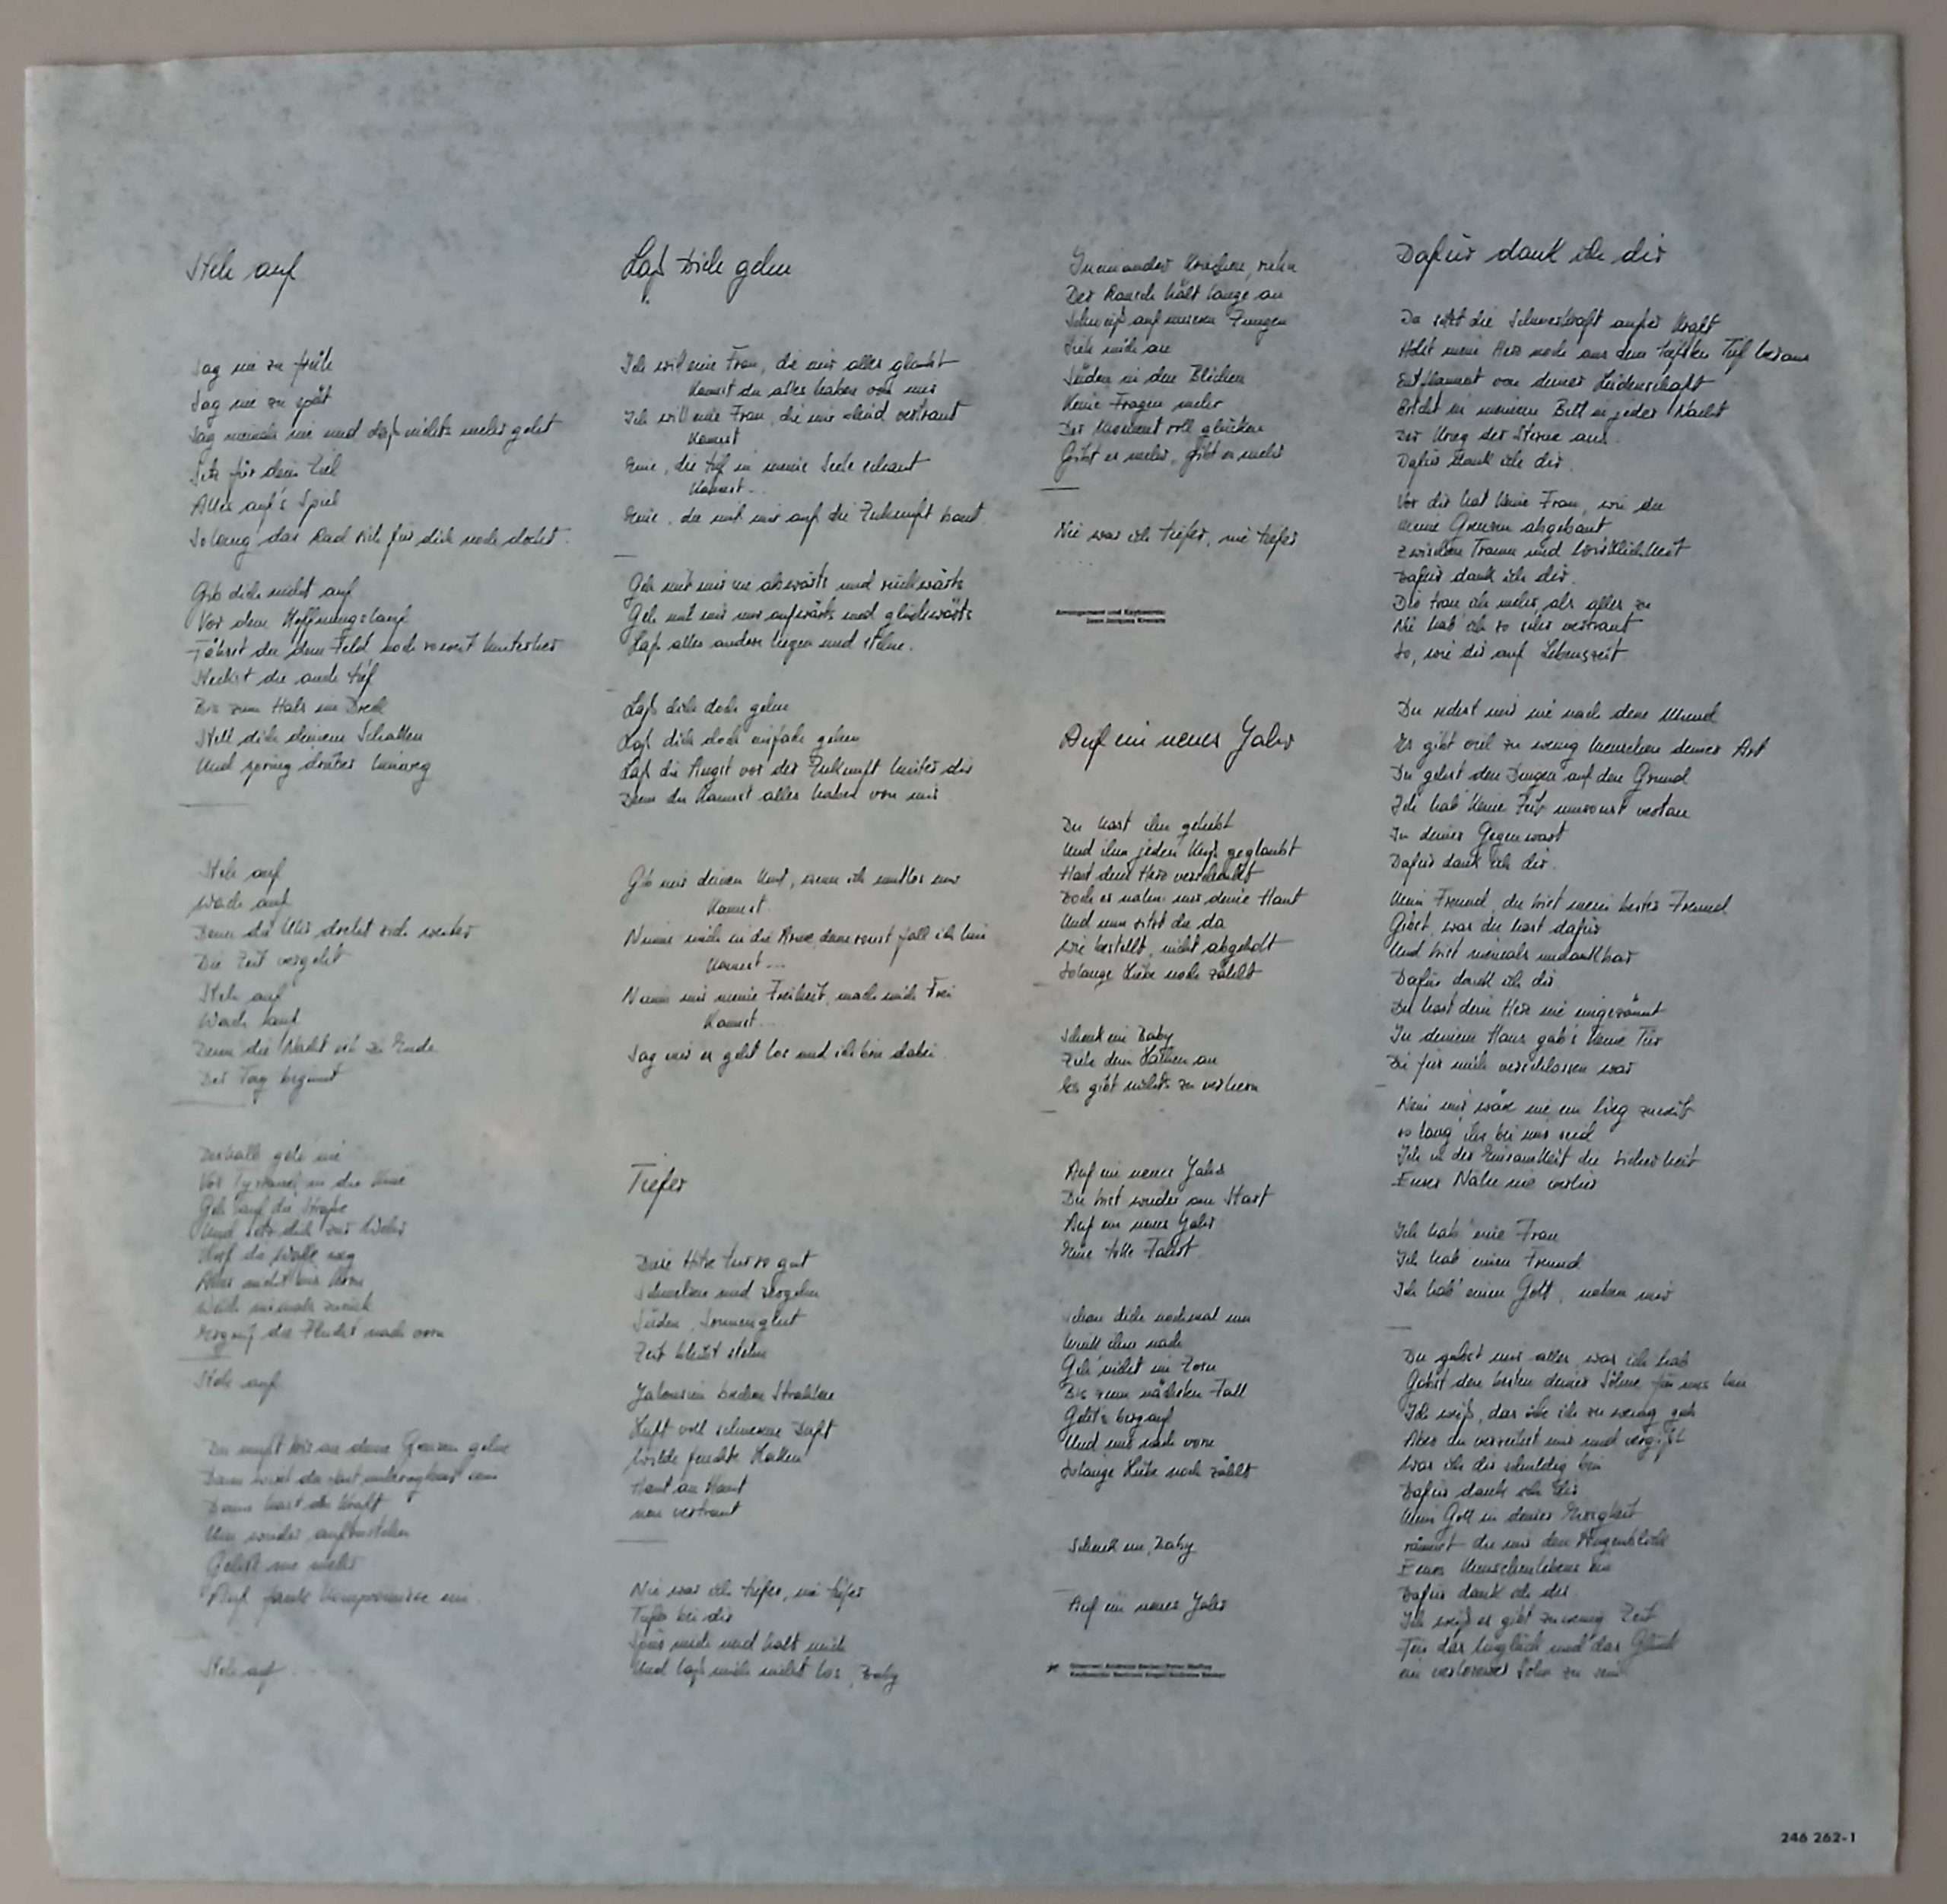 Steh auf
Sag nie zu früh
Sag nie zu spät
Sag niemals nie und daß nichts mehr geht
Setz für dein Ziel
Alles auf's Spiel
Solang' das Rad sich für dich noch dreht.
Gib dich nicht auf
Vor dem Hoffnungslauf
Fährst du dem Feld noch so weit hinterher
Steckst du auch tief
Bis zum Hals im Dreck
Stell dich deinem Schatten
Und spring drüber hinweg
Steh auf
Wach auf
Denn die Uhr dreht sich weiter
Die Zeit vergeht
Steh auf
Wach auf
Denn die Nacht ist zu Ende
Der Tag beginnt
Deshalb geh nie
Vor Tyrannei in die Knie
Geh auf die Straße
Und setz dich zur Wehr
Wirf die Waffe weg
Aber nicht
Weich niemals zurück
Ergreif die Flucht nach vorn
Steh auf
Du mußt bis an deine Grenzen gehn
Dann wirst du unbesiegbar sein
Dann hast du Kraft
Um wieder aufzustehen
Gehst nie mehr
Auf faule Kompromisse ein.
Steh auf ...
Laß Dich gehn
Ich will eine Frau, die mir alles glaubt
Kannst du alles haben von mir
Ich will eine Frau, die mir blind vertraut
Kannst
Eine, die tief in meine Seele schaut
Kannst...
Eine, die mit mir auf die Zukunft baut
Geh mit mir nie abwärts und rückwärts
Geh mit mir nur aufwärts und glückwärts
Laß alles andere liegen und stehn.
Laß dich doch gehn
Laß dich doch einfach gehen
Laß die Angst vor der Zukunft hinter dir
Denn du kannst alles haben von mir
Gib mir deinen Mut, wenn ich mutlos bin
Kannst
Nimm mich in die Arme, denn sonst fall ich hin
Kannst...
Nimm mir meine Freiheit, mach mich frei
Kannst...
Sag mir es geht los und ich bin dabei
Tiefer
Diese Hitze tut so gut
Schmelzen und vergehen
Süden, Sonnenglut
Zeit bleibt stehn
Jalousien brechen Strahlen
Luft voll schwerem Duft
Wilde feuchte Laken
Haut an Haut
neu vertraut
Nie war ich tiefer, nie tiefer
Tiefer bei dir
Spür mich und halt mich
Und laß mich nicht los, Baby
Ineinander kriechen, ruhn
Der Rausch hält lange an
Schweiß auf unseren Zungen
Sieh mich an
Süden in den Blicken
Keine Fragen mehr
Der Moment voll Glücken
Gibt es mehr, gibt es mehr
Nie war ich tiefer, nie tiefer
....
Arrangement und Keyboards:
Jean Jacques Kravetz
Auf ein neues Jahr
Du hast ihn geliebt
Und ihm jeden Kuß geglaubt
Hast dein Herz verschenkt
Doch er nahm nur deine Haut
Und nun sitzt du da
Wie bestellt, nicht abgeholt
Solange Liebe noch zählt
Schenk ein Baby
Zieh dein Lachen an
Es gibt nichts zu verliern
Auf ein neues Jahr
Du bist wieder am Start
Auf ein neues Jahr
Eine tolle Fahrt.
Schau dich nochmal um
Wink ihm nach
Geh' nicht im Zorn
Bis zum nächsten Fall
Geht's bergauf
Und nur nach vorn
Solange Liebe noch zählt
Schenk ein, Baby
Auf ein neues Jahr
* Gitarren: Andreas Becker/Peter Weihe
Keyboards: Bertram Engel/Andreas Becker
Dafür dank ich dir
Du setzt die Schwerkraft außer Kraft
Holst mein Herz noch aus dem tiefsten Tief heraus
Entflammt von deiner Leidenschaft
Bricht in meinem Bett in jeder Nacht
Der Krieg der Sterne aus.
Dafür dank ich dir.
Vor dir hat keine Frau, wie du
meine Grenzen abgebaut
Zwischen Traum und Wirklichkeit
Dafür dank ich dir.
Dir trau ich mehr, als allen zu
Nie hab' ich so sehr vertraut
So, wie dir auf Lebenszeit
Du redest mir nie nach dem Mund
Es gibt viel zu wenig Menschen deiner Art
Du gehst den Dingen auf den Grund
Ich hab' keine Zeit umsonst vertan
In deiner Gegenwart
Dafür dank ich dir.
Mein Freund, du bist mein bester Freund
Gibst, was du hast dafür
Und bist niemals undankbar
Dafür dank ich dir
Du hast dein Herz nie eingezäunt
In deinem Haus gab's keine Tür
Die für mich verschlossen war
Nein mir wär nie ein Weg zu weit
so lang' ihr bei mir seid
Ich in der Einsamkeit die Sicherheit
Eurer Nähe nie verlier
Ich hab' eine Frau
Ich hab' einen Freund
Ich hab' einen Gott, neben mir
Du gabst mir alles, was ich hab
Gabst den besten deiner Söhne für uns hin
Ich weiß, das ich dir zu wenig gab
Aber du verzeihst mir und vergißt
Was ich dir schuldig bin
Dafür dank ich dir
Mein Gott in deiner Ewigkeit
räumst du mir den Augenblick
Eines Menschenlebens ein
Dafür dank ich dir.
Ich weiß es gibt zu wenig Zeit
Für das Unglück und das Glück
ein verlorener Sohn zu sein
246 262-1